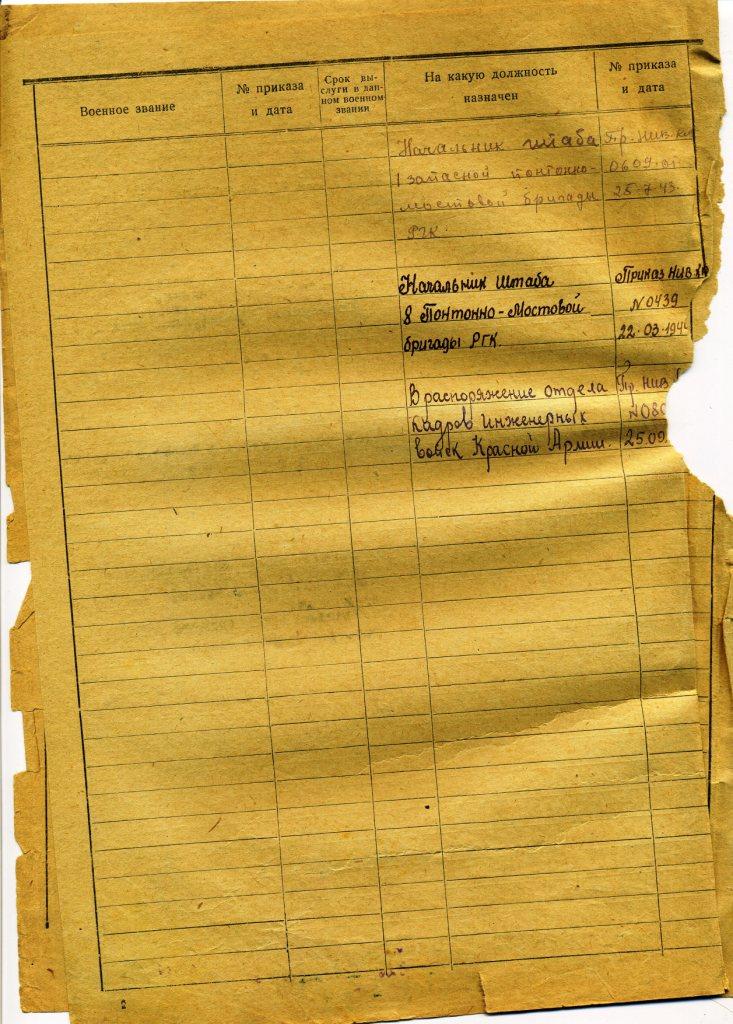 Военное звание
№ приказа
и дата
Срок вы-
слуги в дан-
ном военном
звании
На какую должность
назначен
№ приказа
и дата
Начальник штаба Пр. НИВ.КА
1 запасной понтонно- 0609 от
мостовой бригады 25.7.43.
РГК.
Начальник штаба Приказ НИВ.КА
8 Понтонно-Мостовой N 0439
бригады РГК. 22.03.194
В распоряжение отдела Пр. НИВ
кадров Инженерных N 080
войск Красной Армии. 25.09.
2